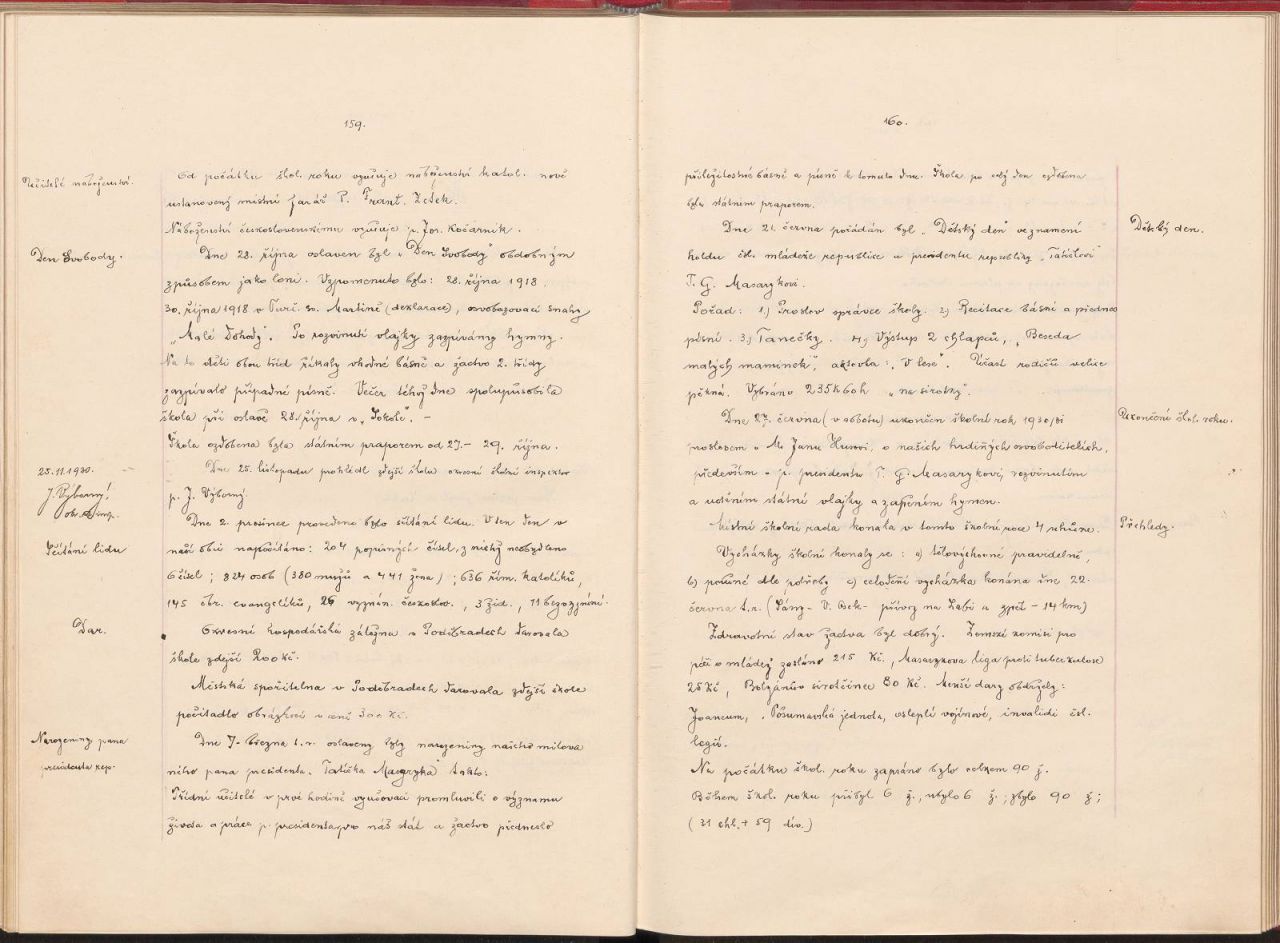 159.
Učitelé náboženství.
Od počátku škol. roku vyučuje náboženství katol. nově
ustanovený místní farář P. Frant. Zelek.
Náboženství československému vyučuje p. Jos. Kočárník.
Den Svobody.
Dne 28. října oslaven byl „Den Svobody" obdobným
způsobem jako loni. Vzpomenuto bylo: 28. října 1918.
30. října 1918 v Turč. sv. Martině (deklarace), osvobozovací snahy
„Malé Dohody". Po rozvinutí vlajky zazpívány hymny.
Na to děti obou tříd říkaly vhodné básně a žactvo 2. třídy
zazpívalo případné písně. Večer téhož dne spolupůsobila
škola při oslavě 28. října v „Sokole". –
Škola ozdobena byla státním praporem od 27. – 29. října.
25.11.1930.
J. Výborný,
okr. š. insp.
Dne 25. listopadu prohlédl zdejší školu okresní školní inspektor
p. J. Výborný.
Sčítání lidu
Dne 2. prosince provedeno bylo sčítání lidu. V ten den v
naší obci napočítáno: 204 popisných čísel, z nichž neobydleno
6 čísel; 824 osob (380 mužů a 441 žena); 636 řím. katolíků,
145 čbr. evangelíků, 26 vyznán. českoslov., 3 žid., 11 bezvyznání.
Dar.
Okresní hospodářská záložna v Poděbradech darovala
škole zdejší 200 Kč.
Městská spořitelna v Poděbradech darovala zdejší škole
počitadlo obrázkové v ceně 300 Kč.
Narozeniny pana
presidenta rep.
Dne 7. března t. r. oslaveny byly narozeniny našeho milova
ného pana presidenta „Tatíčka Masaryka" takto:
Třídní učitelé v prvé hodině vyučovací promluvili o významu
života a práce p. presidenta pro náš stát a žactvo předneslo
160.
příležitostné básně a písně k tomuto dnu. Škola po celý den ozdobena
byla státním praporem.
Dětský den.
Dne 21. června pořádán byl „Dětský den" ve znamení
holdu čsl. mládeže republice a presidentu republiky „Tatíčkovi"
T. G. Masarykovi.
Pořad: 1.) Proslov správce školy. 2.) Recitace básní a přednes
písní. 3.) Tanečky. 4.) Výstup 2 chlapců, „Beseda
malých maminek", aktovka: „V lese". Účast rodičů velice
pěkná. Vybráno 235 K 60 h „na sirotky".
Ukončení škol. roku.
Dne 27. června (v sobotu) ukončen školní rok 1930/31
proslovem o M. Janu Husovi, o našich hrdinných osvoboditelích,
především o p. presidentu T. G. Masarykovi, rozvinutím
a uctěním státní vlajky a zapěním hymen.
Přehledy.
Místní školní rada konala v tomto školní roce 4 schůze.
Vycházky školní konaly se: a) tělovýchovné pravidelně,
b) poučné dle potřeby c) celodenní vycházka konána dne 22.
června t. r. (Sány - V. Osek - přívoz na Labi a zpět – 14 km)
Zdravotní stav žactva byl dobrý. Zemské komisi pro
péči o mládež zasláno 215 Kč., Masarykova liga proti tuberkulose
25 Kč, Bolzánův sirotčinec 80 Kč. Menší dary obdržely:
Joaneum, Pošumavská jednota, oslepli vojínové, invalidi čsl.
legií.
Na počátku škol. roku zapsáno bylo celkem 90 ž.
Během škol. roku přibyl 6 ž., ubylo 6 ž.; zbylo 90 ž;
(31 chl. + 59 dív.)